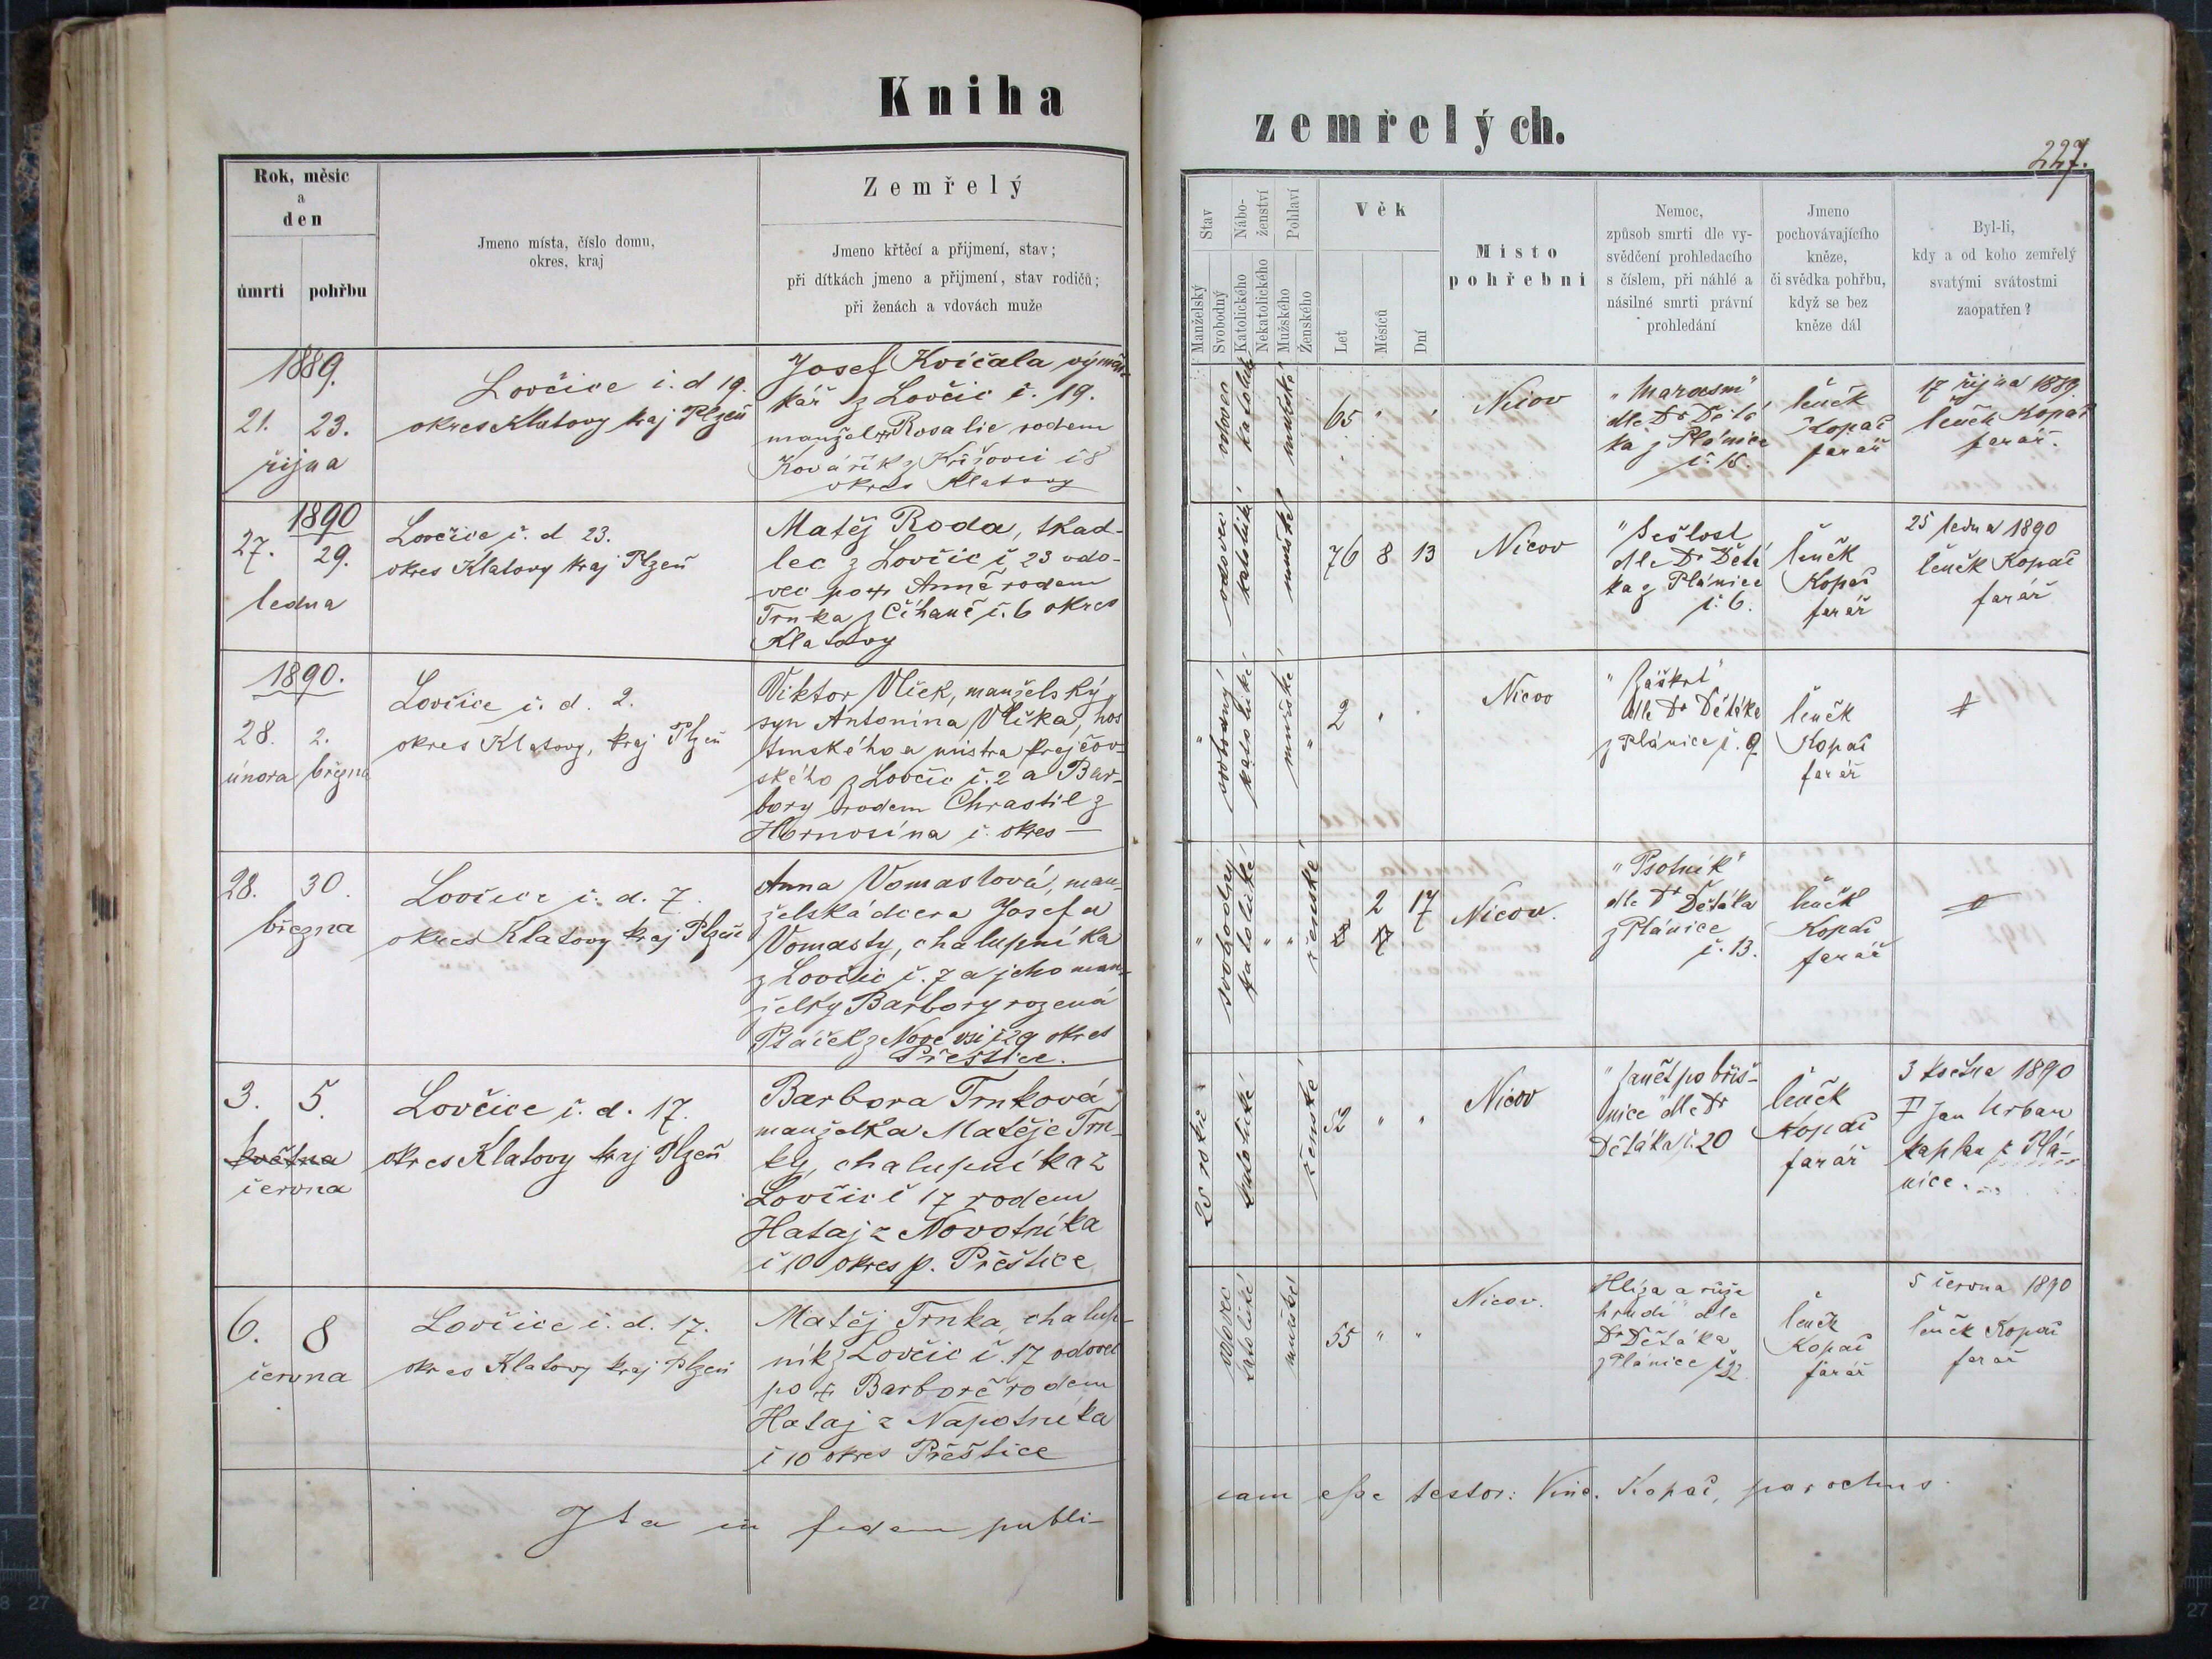 Kniha
zemřelých.
227.
Rok, měsíc
a
den
úmrtí
pohřbu
Jmeno místa, číslo domu,
okres, kraj
Zemřelý
Jmeno křtěcí a přijmení, stav;
při dítkách jmeno a přijmení, stav rodičů;
při ženách a vdovách muže
Stav
Manželský
Svobodný
Nábo-
ženství
Katolického
Nekatolického
Pohlaví
Mužského
Ženského
Věk
Let
Měsíců
Dní
Místo
pohřební
Nemoc,
způsob smrti dle vy-
svědčení prohledacího
s číslem, při náhlé a
násilné smrti právní
prohledání
Jmeno
pochovávajícího
kněze,
či svědka pohřbu,
když se bez
kněze dál
Byl-li,
kdy a od koho zemřelý
svatými svátostmi
zaopatřen?
1889.
21. 23.
října
Lovčice č. d 19.
okres Klatovy kraj Plzeň
Josef Kvíčala výměn-
kář z Lovčic č. 19.
manžel † Rosalie rodem
Kovářík z č 8
okres Klatovy
vdovec
katolické
mužské
65 " "
Nicov
"Marasm"
dle Dr Děťá
ka z Plánice
č. 18.
Kopač
farář
17 října 1889
Kopač
farář.
1890
27. 29.
ledna
Lovčice č. d 23.
okres Klatovy kraj Plzeň
Matěj Roda, tkad-
lec z Lovčic č 23 vdo-
vec po † Anně rodem
Trnka z Číhaně č. 6 okres
Klatovy
vdovec
katolické
mužské
76 8 13
Nicov
"Sešlost
dle Dr Děťá
ka z Plánice
č. 6.
Kopač
farář
25 ledna 1890
Kopač
farář
1890.
28. 2.
února března
Lovčice č. d. 2.
okres Klatovy, kraj Plzeň
Viktor Vlček, manželský
syn Antonína Vlčka, hos
tinského a mistra krejčov-
ského z Lovčic č. 2 a Bar-
bory rodem Chrastil z
Hornosína č. okres —
"
svobodný
katolické
mužské
"
2 " "
Nicov
"Záškrt"
dle Dr Děťáka
z Plánice č. 9
Kopač
farář
28. 30.
března
Lovčice č. d. 7.
okres Klatovy kraj Plzeň
Anna Vomastová, man-
želská dcera Josefa
Vomasty, chalupníka
z Lovčic č. 7 a jeho man-
želky Barbory rozená
Ptáček z Nové vsi č 29 okres
Přeštice.
"
svobodný
katolické
" "
ženské
2 17
Nicov.
"Psotník"
dle Dr Děťáka
z Plánice
č. 13.
Kopač
farář
3. 5.
května
června
Lovčice č. d. 17.
okres Klatovy kraj Plzeň
Barbora Trnková
manželka Matěje Trn-
ky, chalupníka z
Lovčic č 17 rodem
Hataj z Novotníka
č 10 okres p. Přeštice
25 roků
katolické
ženské
52 " "
Nicov
"Zanět pobřiš-
nice" dle Dr
Děťáka č. 20
Kopač
farář
3 května 1890
P Jan Urban
kaplan z Plá-
nice.
6. 8
června
Lovčice č. d. 17.
okres Klatovy kraj Plzeň
Matěj Trnka, chalup-
ník z Lovčic č. 17 vdovec
po † Barboře rodem
Hataj z Napotníka
č 10 okres Přeštice
vdovec
katolické
mužské
55 " "
Nicov.
Hlíza a růže
hrudi" dle
Dr Děťáka
z Plánice č 22
Kopač
farář
5 června 1890
Kopač
farář
Ita in fidem publi-
cam esse testor: Vinc. Kopač, parochus.